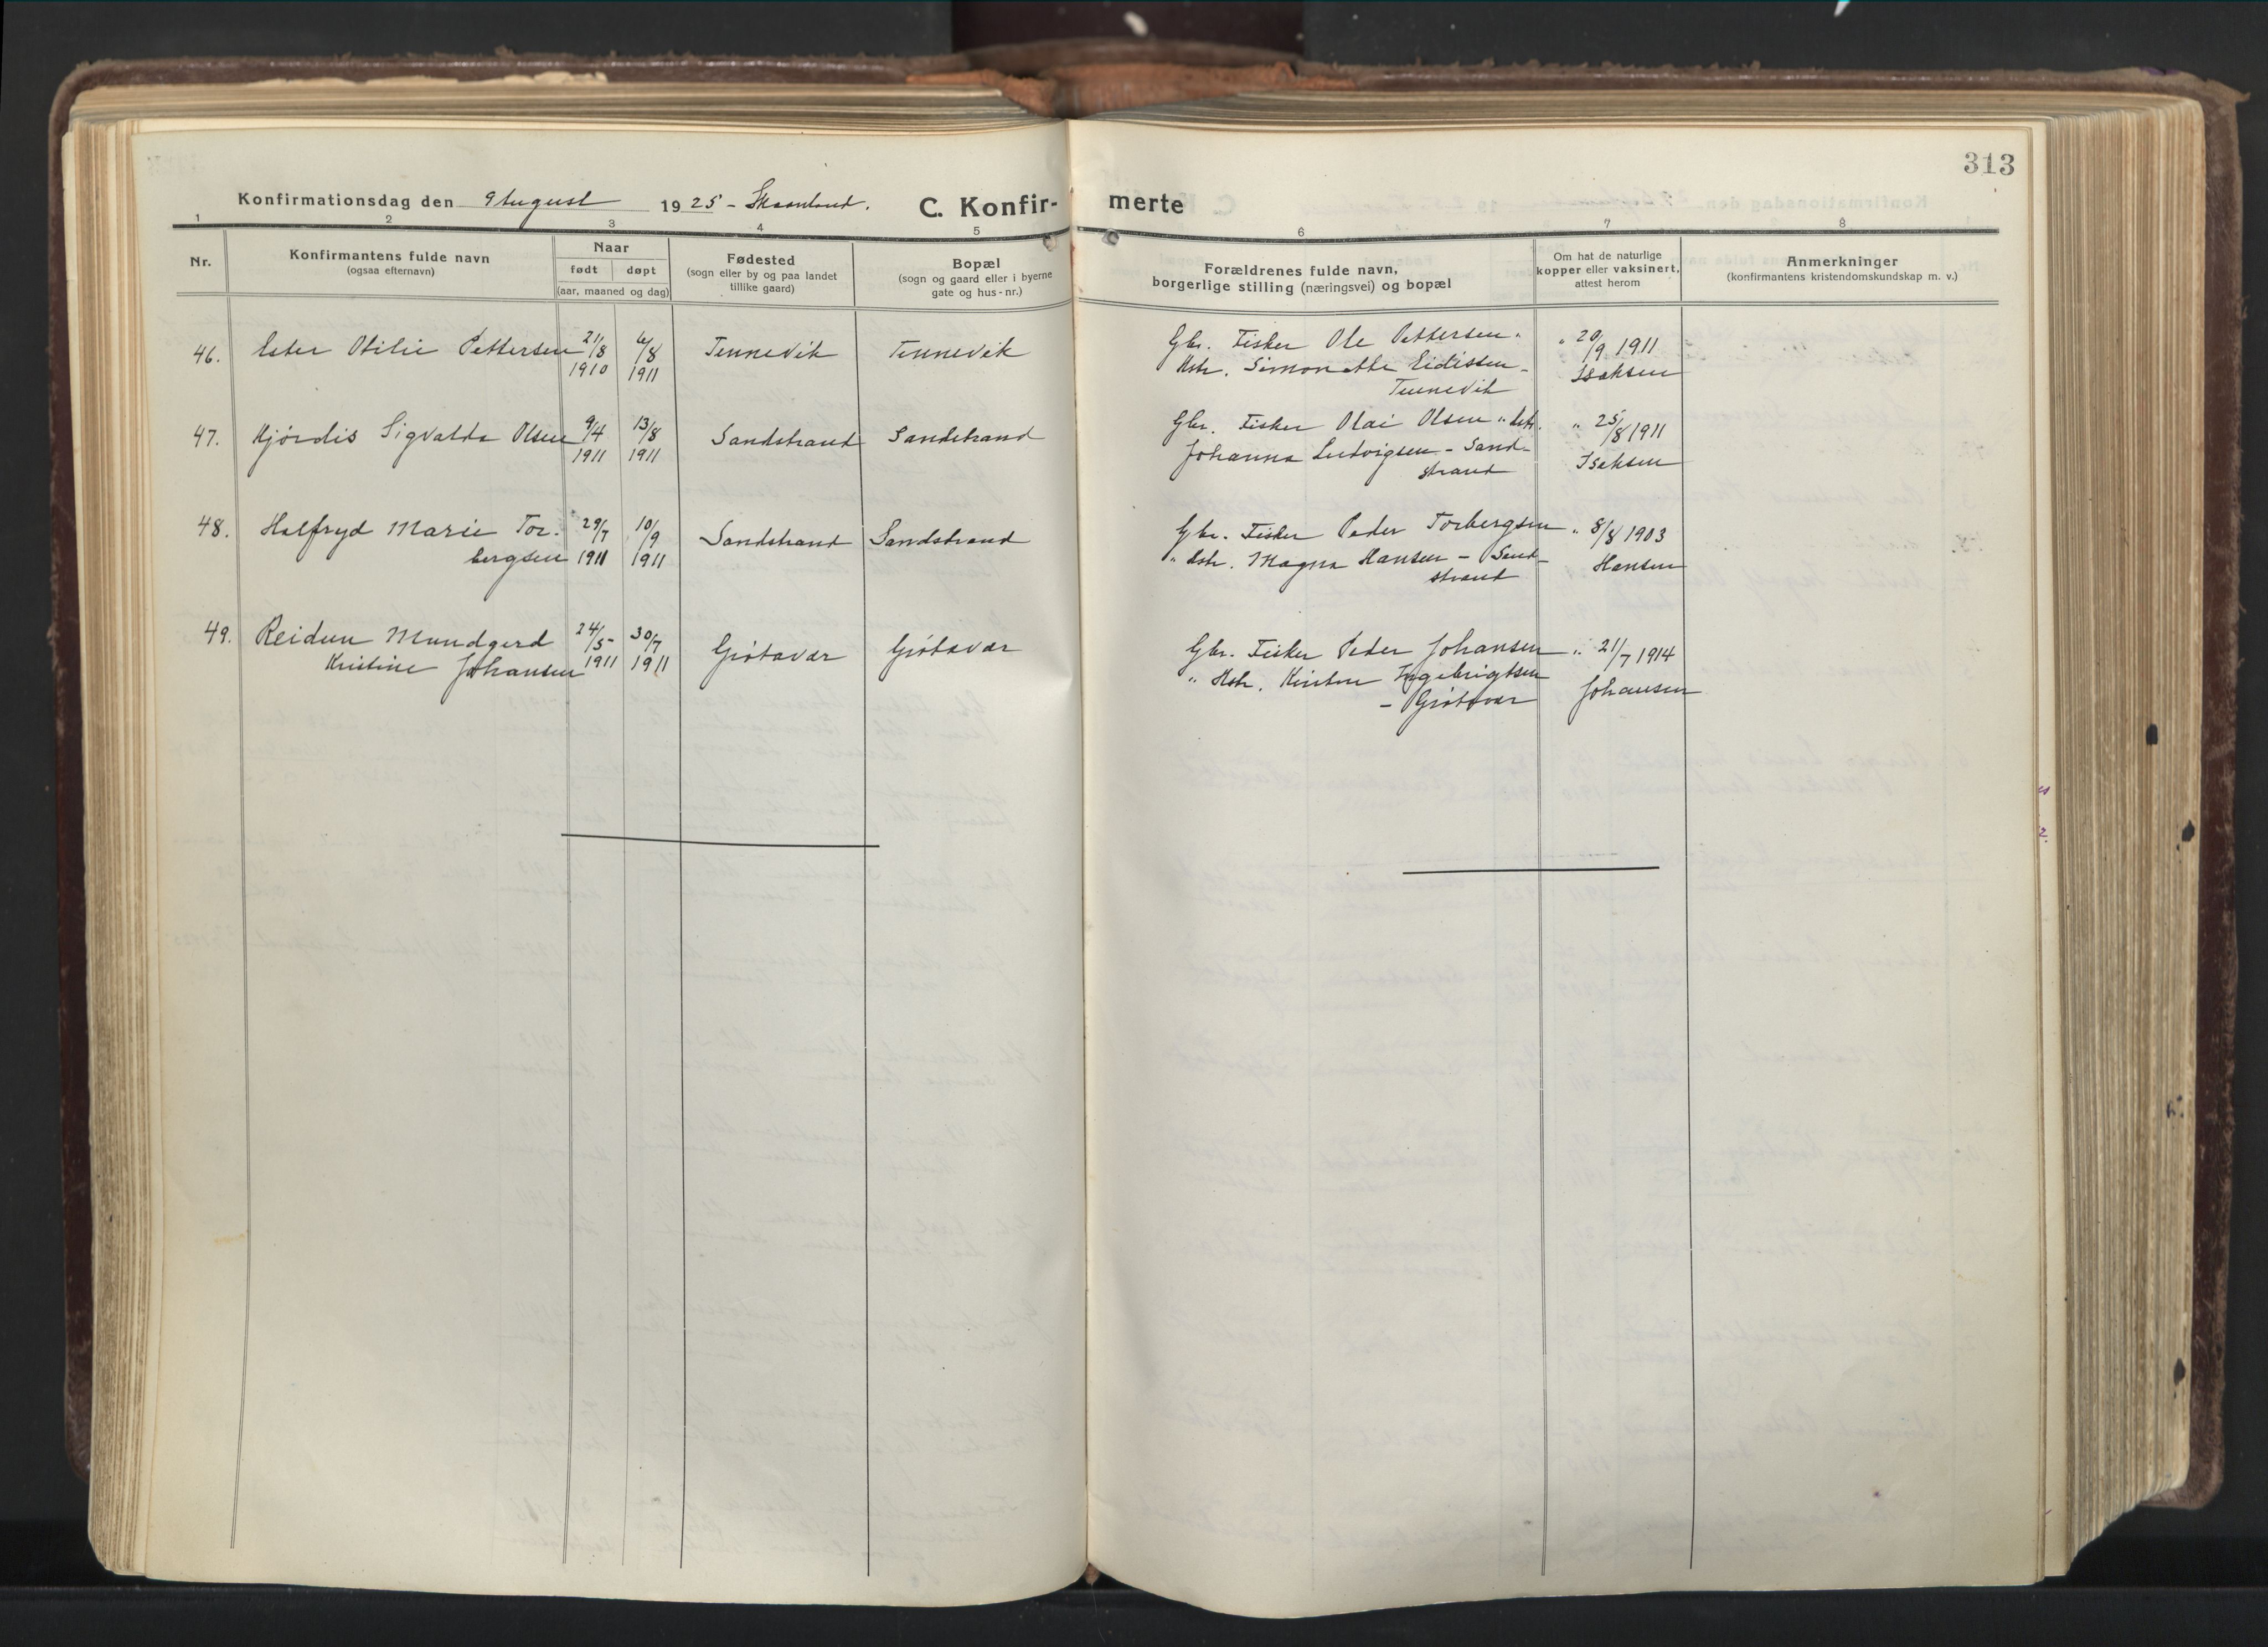 313
Konfirmationsdag den 9 August 1925 - Skaanland. C. Konfir- merte
1 2 3 4 5 6 7 8
Nr.
Konfirmantens fulde navn
(ogsaa efternavn)
Naar
født døpt
(aar, maaned og dag)
Fødested
(sogn eller by og paa landet
tillike gaard)
Bopæl
(sogn og gaard eller i byerne
gate og hus-nr.)
Forældrenes fulde navn,
borgerlige stilling (næringsvei) og bopæl
Om hat de naturlige
kopper eller vaksinert,
attest herom
Anmerkninger
(konfirmantens kristendomskundskap m. v.)
46. Ester Otilie Pettersen 21/8 6/8 Tennevik Tennevik Gbr. Fisker Ole Pettersen „ „ 20/9 1911
1910 1911 Hstr. Simonette Eidissen - Isaksen
Tennevik
47. Hjørdis Sigvalda Olsen 9/4 13/8 Sandstrand Sandstrand Gbr. Fisker Olai Olsen „ Hstr. „ 25/8 1911
1911 1911 Johanna Ludvigsen - Sand- Isaksen
strand
48. Halfryd Marie Tor- 29/7 10/9 Sandstrand Sandstrand Gbr. Fisker Peder Torbergsen „ 8/8 1903
bergsen 1911 1911 „ Hstr. Magna Hansen - Sand- Hansen
strand
49. Reidun Mundgerd 24/5 30/7 Grøtavær Grøtavær Gbr. Fisker Peder Johansen „ 21/7 1914
Kristine Johansen 1911 1911 „ Hstr. Kirsten Ingebrigtsen Johansen
- Grøtavær